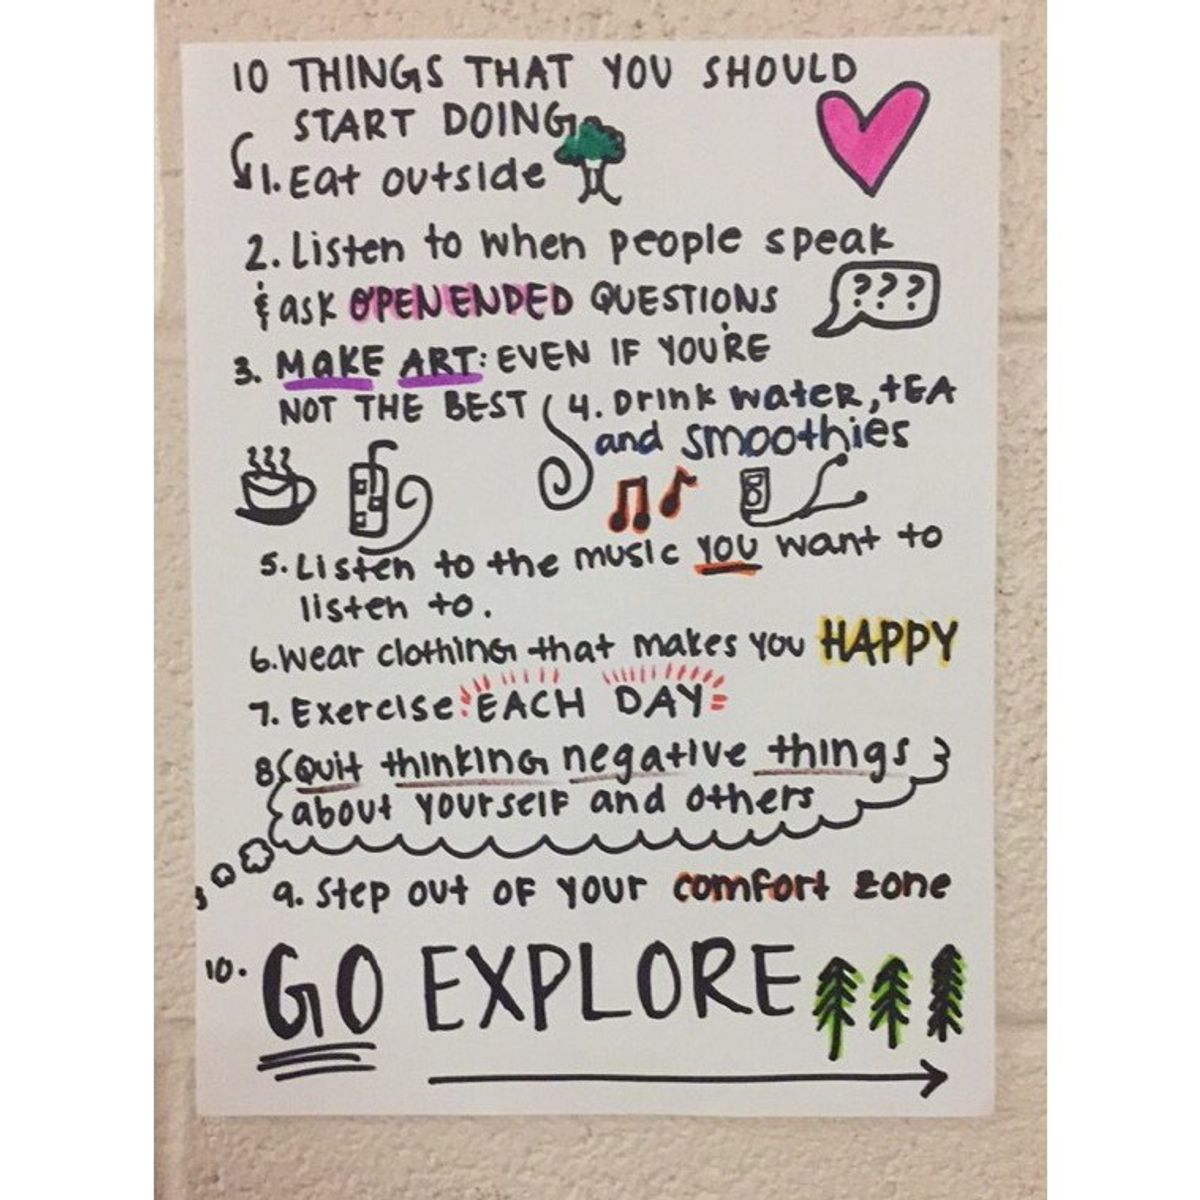 10 THINGS THAT YOU SHOULD
START DOING
1. Eat outside
2. Listen to when people speak
& ask OPEN ENDED QUESTIONS
???
3. MAKE ART: EVEN IF YOU'RE
NOT THE BEST
4. Drink water, tEA
and smoothies
5. Listen to the music YOU want to
listen to.
6. Wear clothing that makes you HAPPY
7. Exercise EACH DAY
8 Quit thinking negative things
about yourself and others
9. Step out of your comfort zone
10. GO EXPLORE